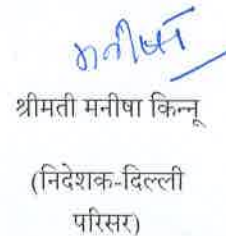 मनीषा
श्रीमती मनीषा किन्नू
(निदेशक-दिल्ली
परिसर)